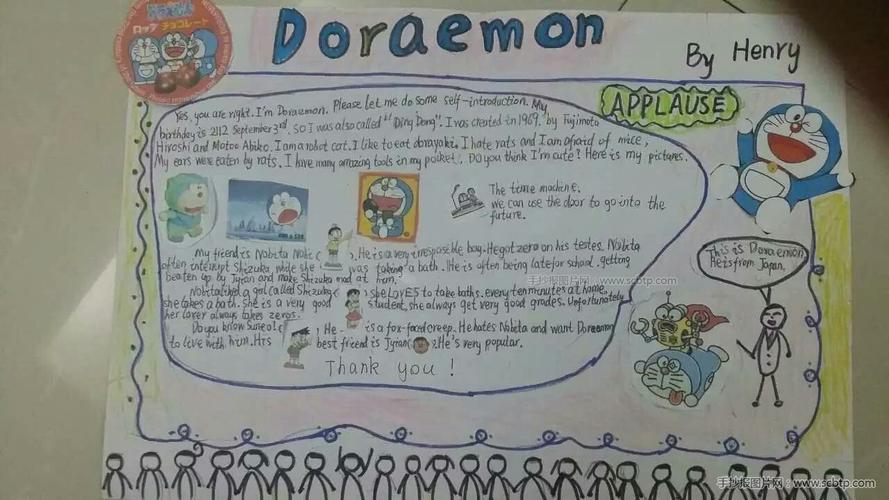 ドラえもん
ロッテ チョコレート
Doraemon
By Henry
APPLAUSE
Yes, you are right. I'm Doraemon. Please let me do some self-introduction. My
birthday is 2112 September 3rd. So I was also called "Ding Dong". I was created in 1969. by Fujimoto
Hiroshi and Motoo Abiko. I am a robot cat. I like to eat dorayaki. I hate rats and I am afraid of mice,
My ears were eaten by rats. I have many amazing tools in my pocket. Do you think I'm cute? Here is my pictures.
The time machine.
we can use the door to go into the
future.
My friend is Nobita Nobi ( ). He is a very irresposible boy. He got zero on his testes. Nobita
often interupt Shizuka while she was taking a bath. He is often being late for school. getting
beaten up by Jyian and make Shizuka mad at him.
Nobita a girl called Shizuka ( ) she LOVES to take baths. every ten minutes at home.
she takes a bath. She is a very good student, she always get very good grades. Unfortunately
her lover always takes zeros.
Do you know Suneo! ( ). He is a fox-faced creep. He hates Nobita and want Doraemon
to live with him. His best friend is Jyian( ). He's very popular.
Thank you!
This is Doraemon
He is from Japan.
手抄报图片网 - www.scbtp.com
手抄报图片网：www.scbtp.com